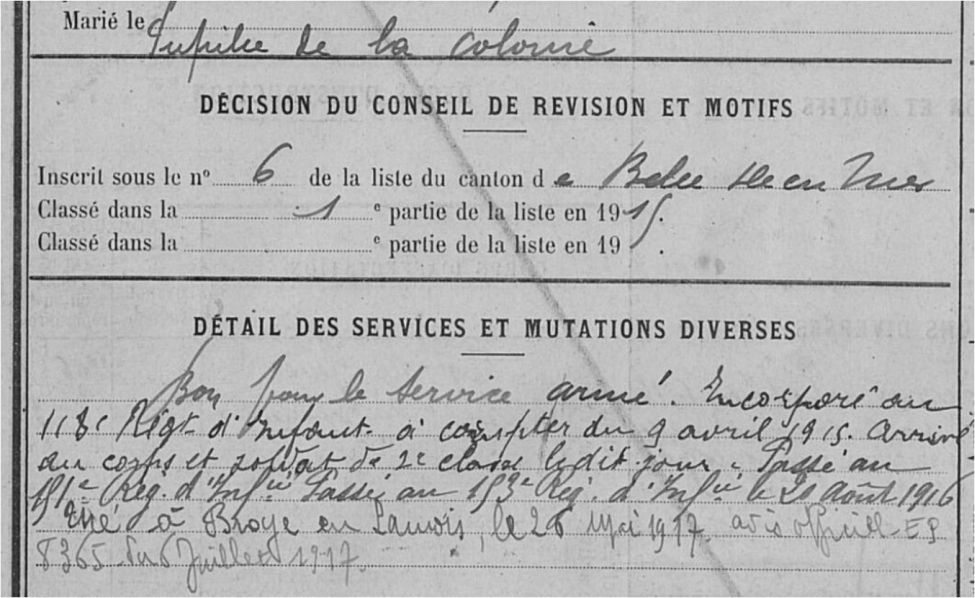 Marié le
Pupille de la colonie
DÉCISION DU CONSEIL DE REVISION ET MOTIFS
Inscrit sous le nº 6 de la liste du canton de Belle Ile en Mer
Classé dans la 1 e partie de la liste en 1915.
Classé dans la e partie de la liste en 19 .
DÉTAIL DES SERVICES ET MUTATIONS DIVERSES
Bon pour le service armé. Incorporé au
118e Régt d'Infant. à compter du 9 avril 1915. Arrivé
au corps et soldat de 2e classe ledit jour. Passé au
151e Rég. d'Infie Passé au 153e Rég. d'Infie le 20 Août 1916
Tué à Broye en Lanois, le 26 Mai 1917. avis officiel EP
8365 du 6 Juillet 1917.